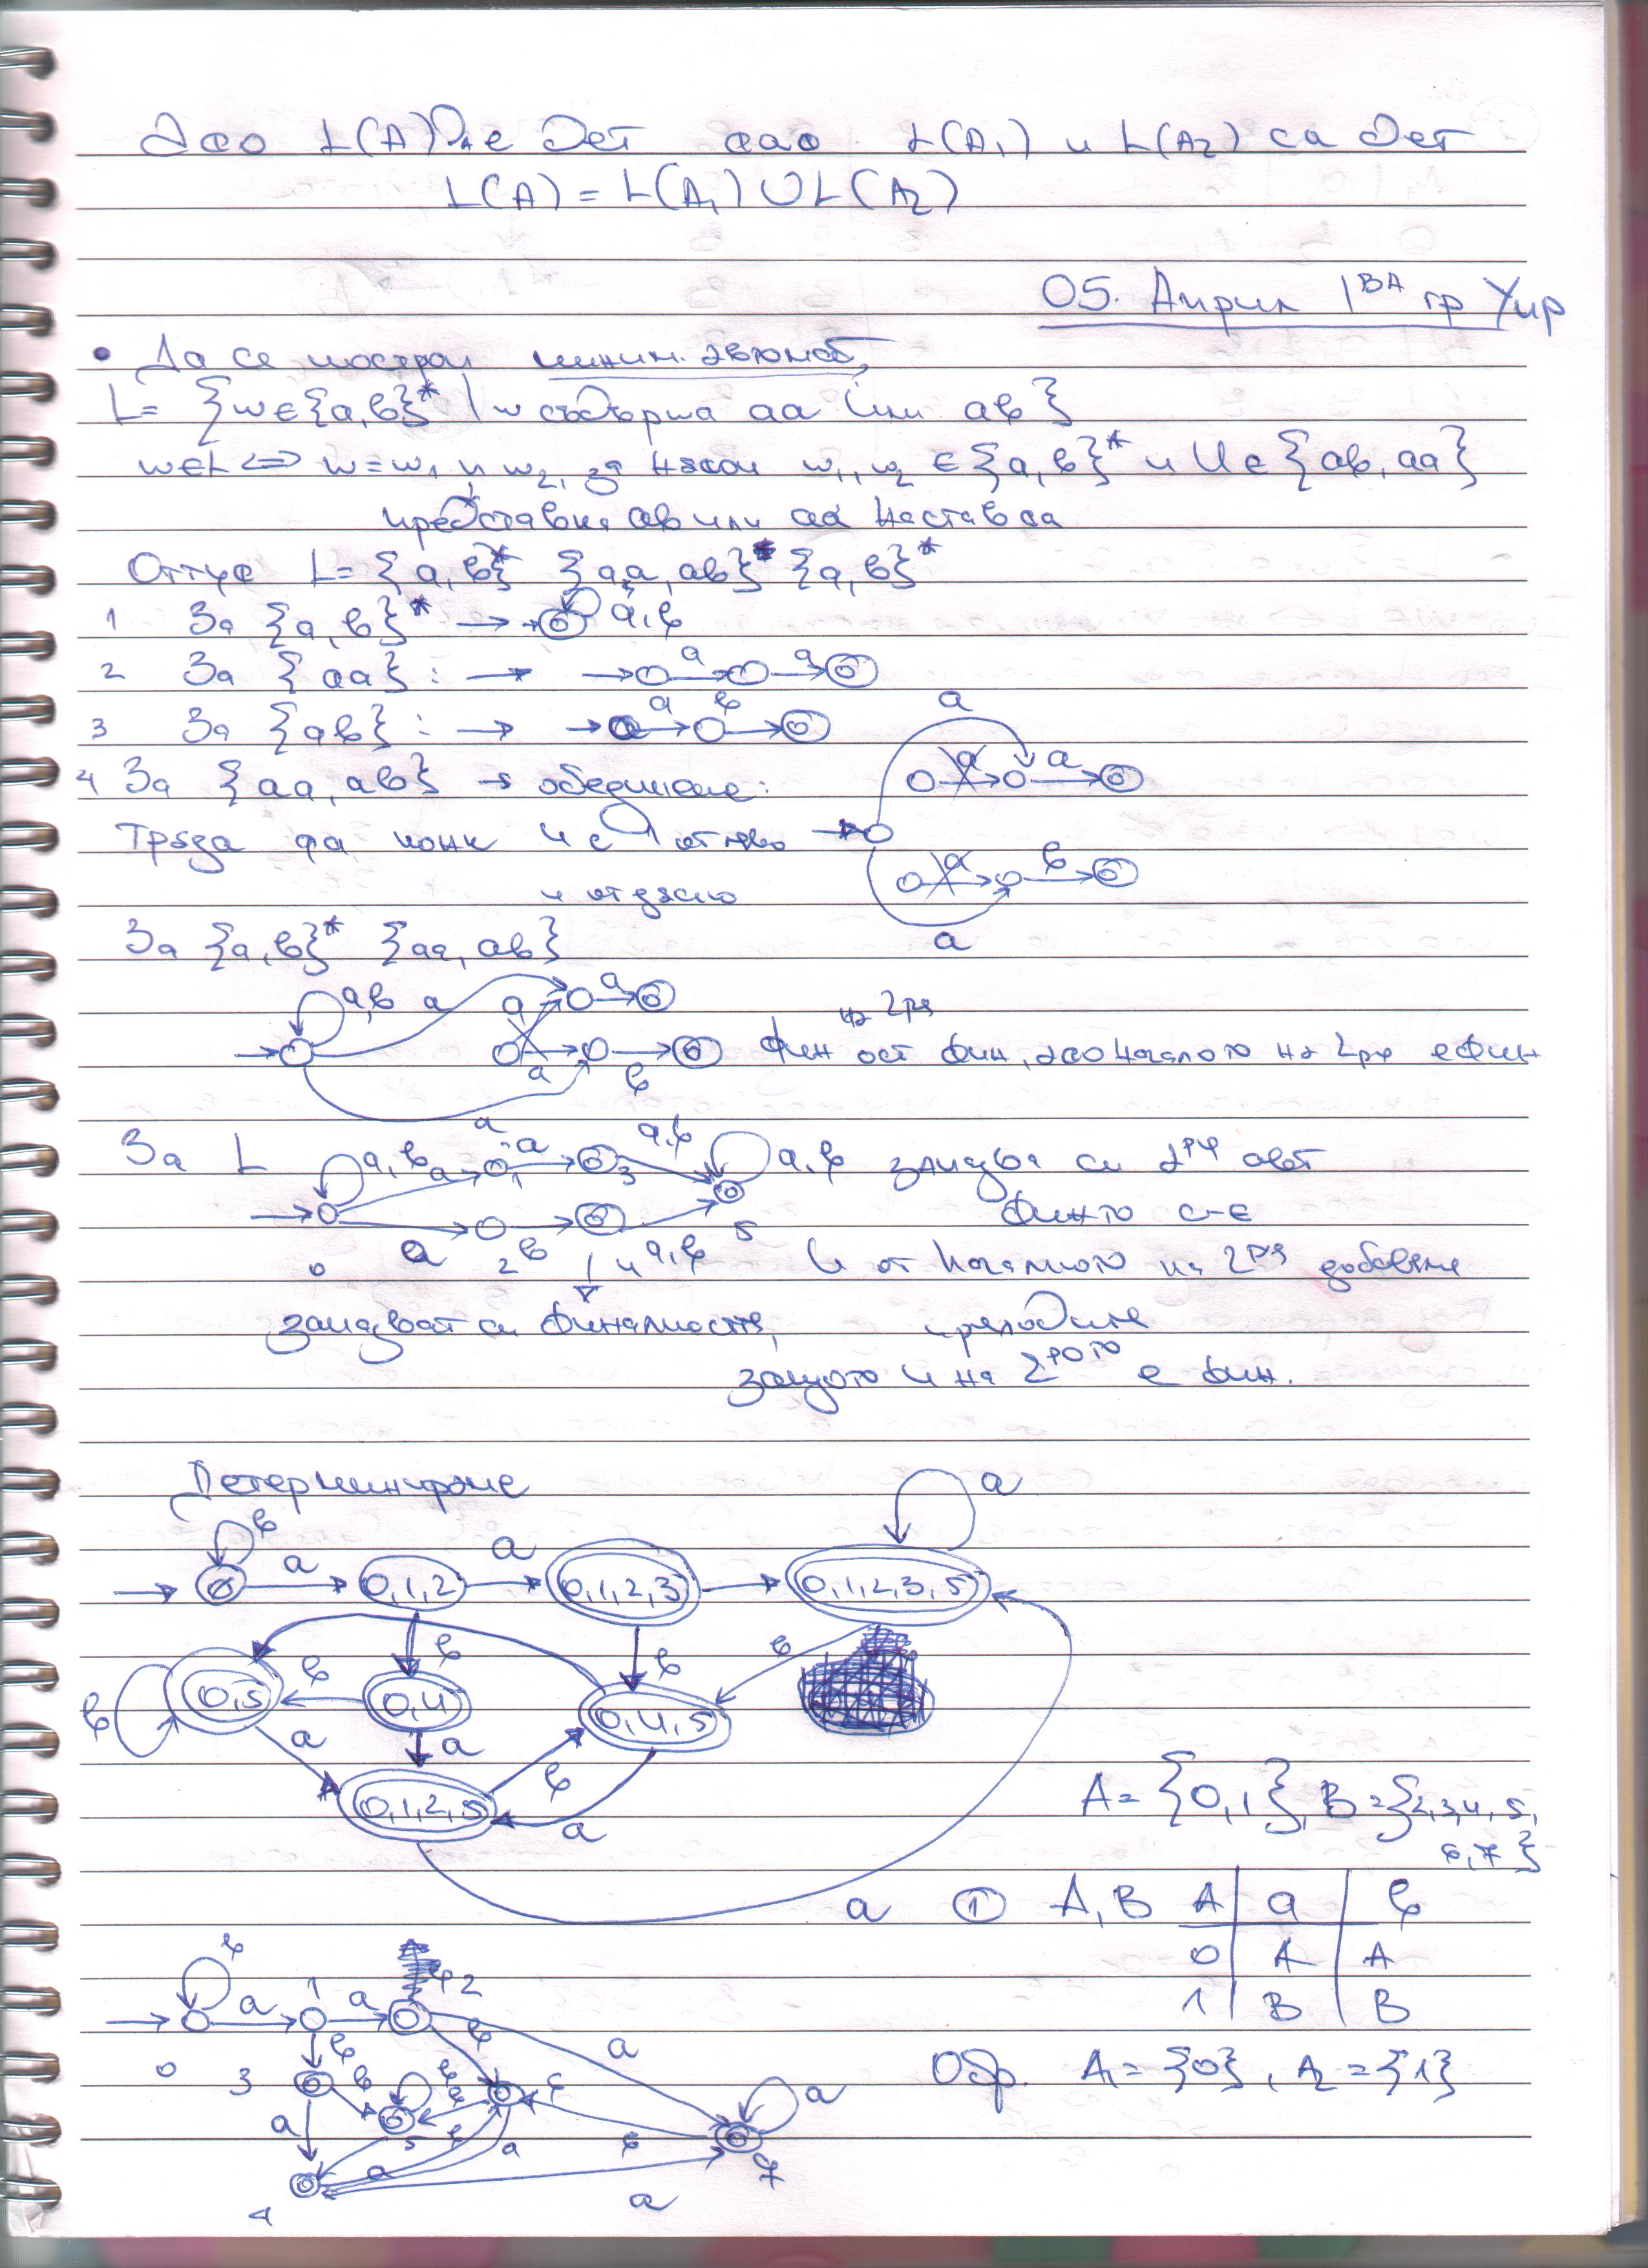 Ако L(A) не е дет как L(A₁) и L(A₂) са дет
L(A) = L(A₁) ∪ L(A₂)
05. Април 1ва гр Упр
• Да се построи миним. автомат,
L = {w ∈ {a,b}* | w съдържа aa или ab}
w∈L ⇔ w = w₁ u w₂, за някои w₁, w₂ ∈ {a,b}* и U ∈ {ab, aa}
представка ab или aa наставка
Оттук L = {a,b}* {aa, ab} {a,b}*
1 За {a,b}* → a,b
2 За {aa} : → a a
3 За {ab} : → a b
4 За {aa, ab} → обединение:
a a a
Трябва да конк и с от ляво
и от дясно
a b a
За {a,b}* {aa, ab}
a,b a a a
a b a
фин на 2ря ост фин, ако началото на 2ря е фин
За L a,b a 1 a 3 a,b a,b запазва си 2ря авт
0 a 2 b 4 a,b 5 финто с-е
и от началното на 2ря добавяме
запазват си финалността, преходите
защото и на 2рото е фин.
Детерминираме
b a 0,1,2 a 0,1,2,3 0,1,2,3,5 a
b b b
b 0,5 b 0,4 0,4,5
a a b a
0,1,2,5
a
A = {0,1}, B = {2,3,4,5,
6,7}
① A, B A | a | b
0 | A | A
1 | B | B
b 0 a 1 a 2
b b a
3 b b b b a
a 5 b a b 7
4 a a
Обр. A₁ = {0}, A₂ = {1}